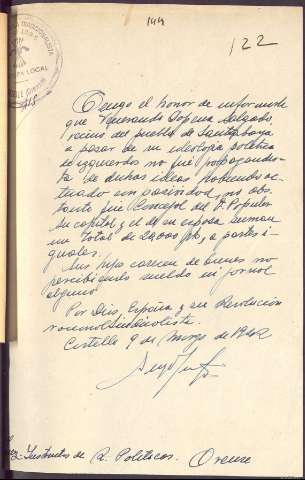 144
122
TRADICIONALISTA
LOCAL
Tengo el honor de informarle
que Fernando Sopena Salgado,
vecino del pueblo de Santabaya
a pesar de su ideologia politica
de izquierdas no fué propagandis-
ta de dichas ideas habiendo ac-
tuado con pasividad, no obs-
tante fué Concejal del F. Popular
Su capital y el de su esposa suman
un total de 24.000 pts, a partes i-
guales.
Sus hijos carecen de bienes no
percibiendo sueldo ni jornal
alguno
Por Dios, España y su Revolución
nacional sindicalista.
Cartelle 9 de Marzo de 1942
Instructor de R. Politicas. Orense